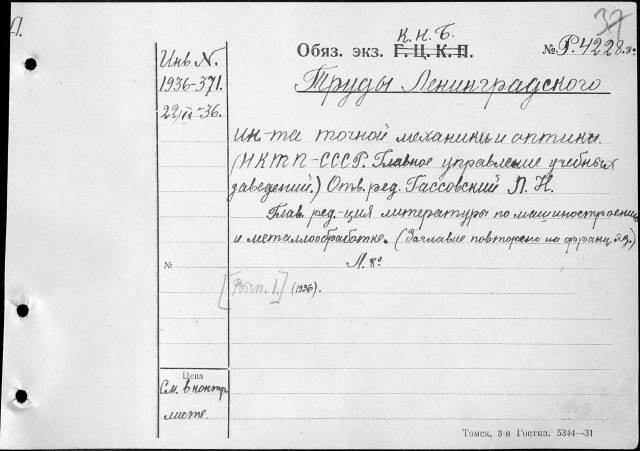 37
К.Н.Б.
Обяз. экз. Г.Ц.К.П. № Р.4228.3º
Инв N.
1936-371.
22/IX-36.
Труды Ленинградского
ин-та точной механики и оптики.
(НКТП-СССР. Главное управление учебных
заведений.) Отв. ред. Гассовский Л. Н.
Глав. ред.-ция литературы по машиностроению
и металлообработке. (Заглавие повторено на франц. яз.)
Л. 8º
№
[Вып. 1.] (1936).
Цена
См. в контр.
листе.
Томск, 3-я Гостип. 5344—31